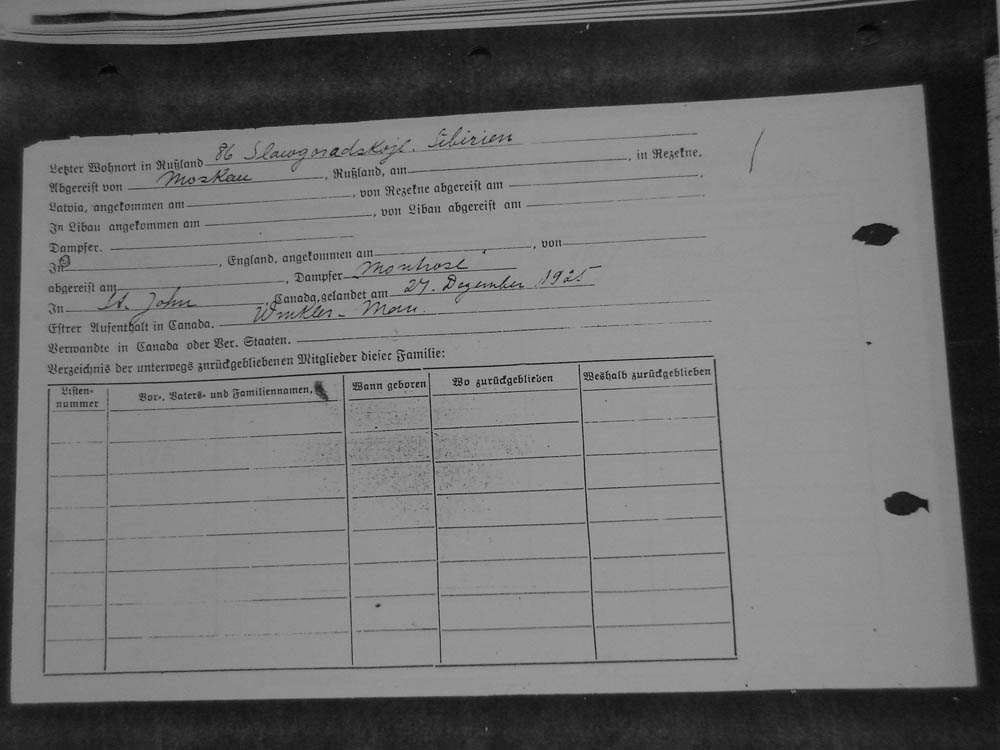 Letzter Wohnort in Rußland 86 Slawgoradskoje. Sibirien
Abgereist von Moskau, Rußland, am, in Rezekne,
Latvia, angekommen am, von Rezekne abgereist am
In Libau angekommen am, von Libau abgereist am
Dampfer.
In, England, angekommen am, von
abgereist am, Dampfer Montrose
In St. John, Canada, gelandet am 27. Dezember 1925
Estrer Aufenthalt in Canada. Winkler - Man.
Verwandte in Canada oder Ver. Staaten.
Verzeichnis der unterwegs znrückgebliebenen Mitglieder dieser Familie:
Listen-nummer Vor-, Vaters- und Familiennamen, Wann geboren Wo zurückgeblieben Weshalb zurückgeblieben